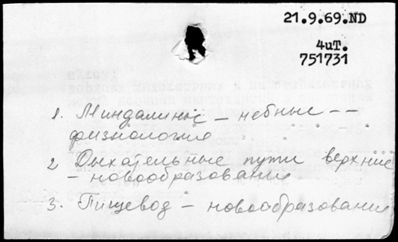 21.9.69.ND
4uT.
751731
1. Миндалины - небные --
физиология
2 Дыхательные пути верхние
- новообразования
3. Пищевод - новообразования